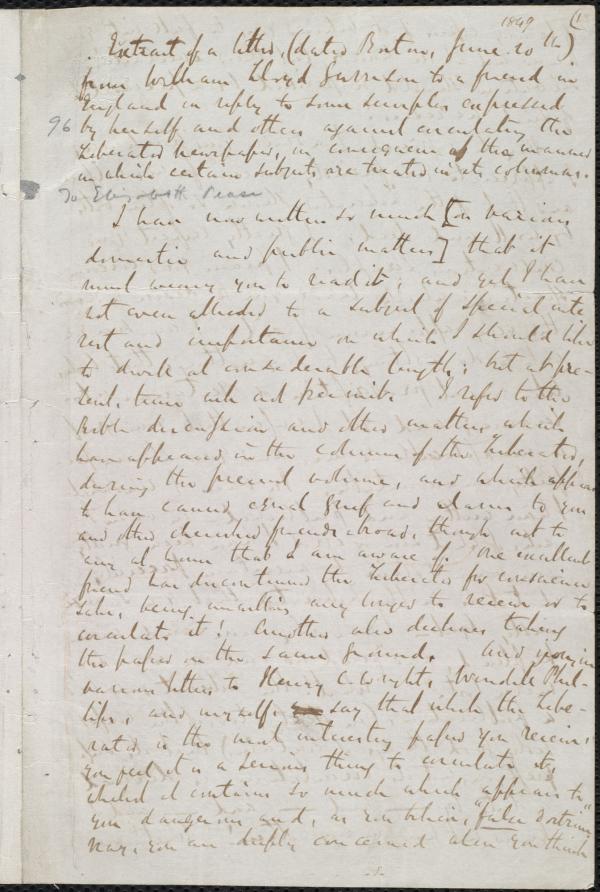 1849 (1
Extract of a letter, (dated Boston, June 20th)
from William Lloyd Garrison to a friend in
England in reply to some scruples expressed
96 by herself and others against circulating the
Liberator newspaper, in consequence of the manner
in which certain subjects are treated in its columns.
To Elizabeth Pease
I have now written so much [on various
domestic and public matters] that it
must weary you to read it; and yet I have
not even alluded to a subject of special inte
rest and importance on which I should like
to dwell at considerable length; but at pre-
sent, time will not permit. I refer to the
Bible discussion and other matters which
have appeared in the columns of the Liberator,
during the present volume, and which appear
to have caused equal grief and alarm to you
and other cherished friends abroad, though not to
any at home that I am aware of. One excellent
friend has discontinued the Liberator for conscience
sake, being unwilling any longer to receive or to
circulate it! Another also declines taking
the paper on the same ground. And you, in
various letters to Henry C. Wright, Wendell Phil-
lips, and myself, say that while the Libe-
rator is the most interesting paper you receive,
you feel it is a serious thing to circulate it,
while it contains so much which appears to
you dangerous and, as you believe, "false doctrine"
Nay, you are deeply concerned when you think